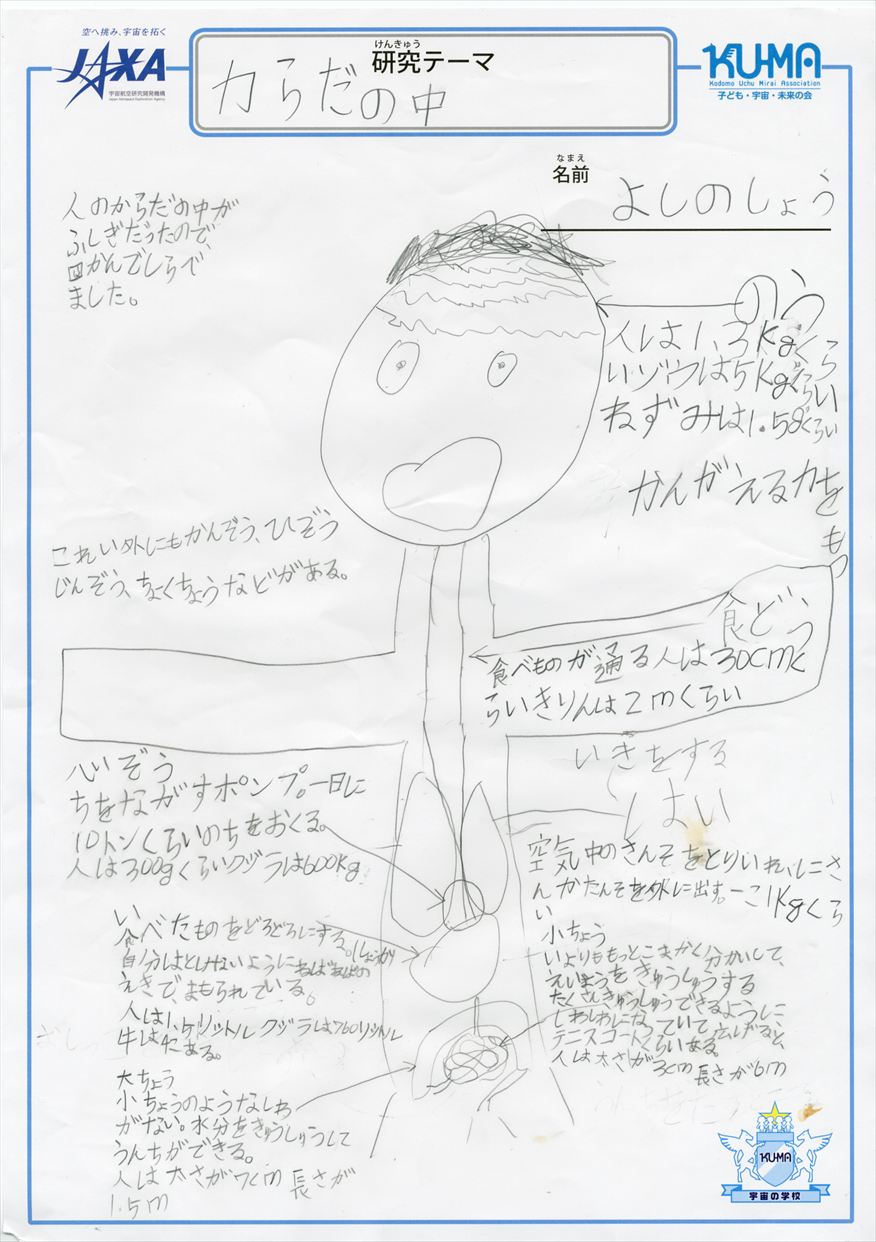 空へ挑み、宇宙を拓く
JAXA
宇宙航空研究開発機構
Japan Aerospace Exploration Agency
けんきゅう
研究テーマ
からだの中
KU-MA
Kodomo Uchu Mirai Association
子ども・宇宙・未来の会
なまえ
名前
よしのしょう
人のからだの中が
ふしぎだったので、
図かんでしらべ
ました。
のう
人は1.3kgくら
い・ゾウは5kgくらい
ねずみは1.5gくらい
かんがえる力を
もつ
これい外にもかんぞう、ひぞう
じんぞう、ちょくちょうなどがある。
食どう
食べものが通る人は30cmく
らいきりんは2mくらい
いきをする
はい
空気中のさんそをとりいれ、にさ
んかたんそを外に出す。一こ1kgくら
い
心ぞう
ちをながすポンプ。一日に
10トンくらいのちをおくる。
人は300gくらいクジラは600kg
い
食べたものをどろどろにする。(しょうか
自分はとけないようにねばねばの
えきで、まもられている。
人は1.5リットル クジラは760リットル
牛は4こある。
小ちょう
いよりももっとこまかく分かいして、
えいようをきゅうしゅうする
たくさんきゅうしゅうできるように
しわしわになっていて、広げると、
テニスコートくらいある。
人は太さが3cm 長さが6m
大ちょう
小ちょうのようなしわ
がない。水分をきゅうしゅうして
うんちができる。
人は太さが7cm 長さが
1.5m
KU-MA
宇宙の学校